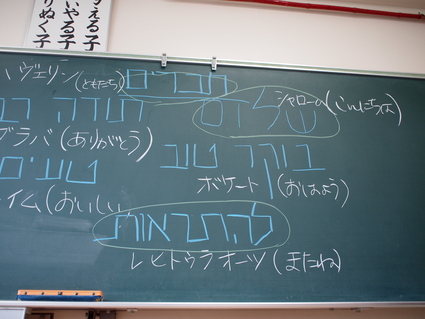 える子
いやる子
りぬく子
ハヴェリン(ともだち) חברים
שלום シャローム(こんにちは)
תודה רב
ラバ(ありがとう)
בוקר טוב
טעים
ボケート(おはよう)
イム(おいしい
להתראות
レヒトゥラオーツ(またね)